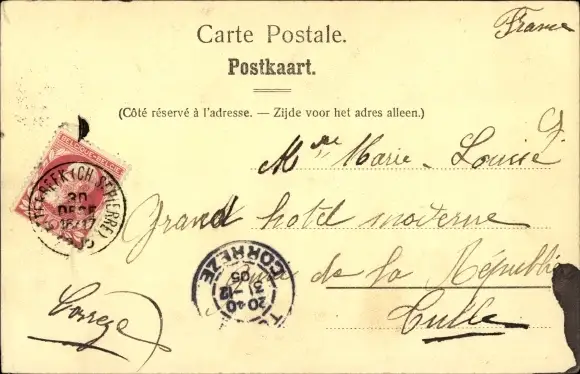 France
Carte Postale.
Postkaart.
(Côté réservé à l'adresse. — Zijde voor het adres alleen.)
Mme Marie-Louise
Grand hotel moderne
de la République
Tulle
Corrèze
BELGIQUE·BELGIE
30
DEC
16-17
CORREZE
20 40
31 -12
05